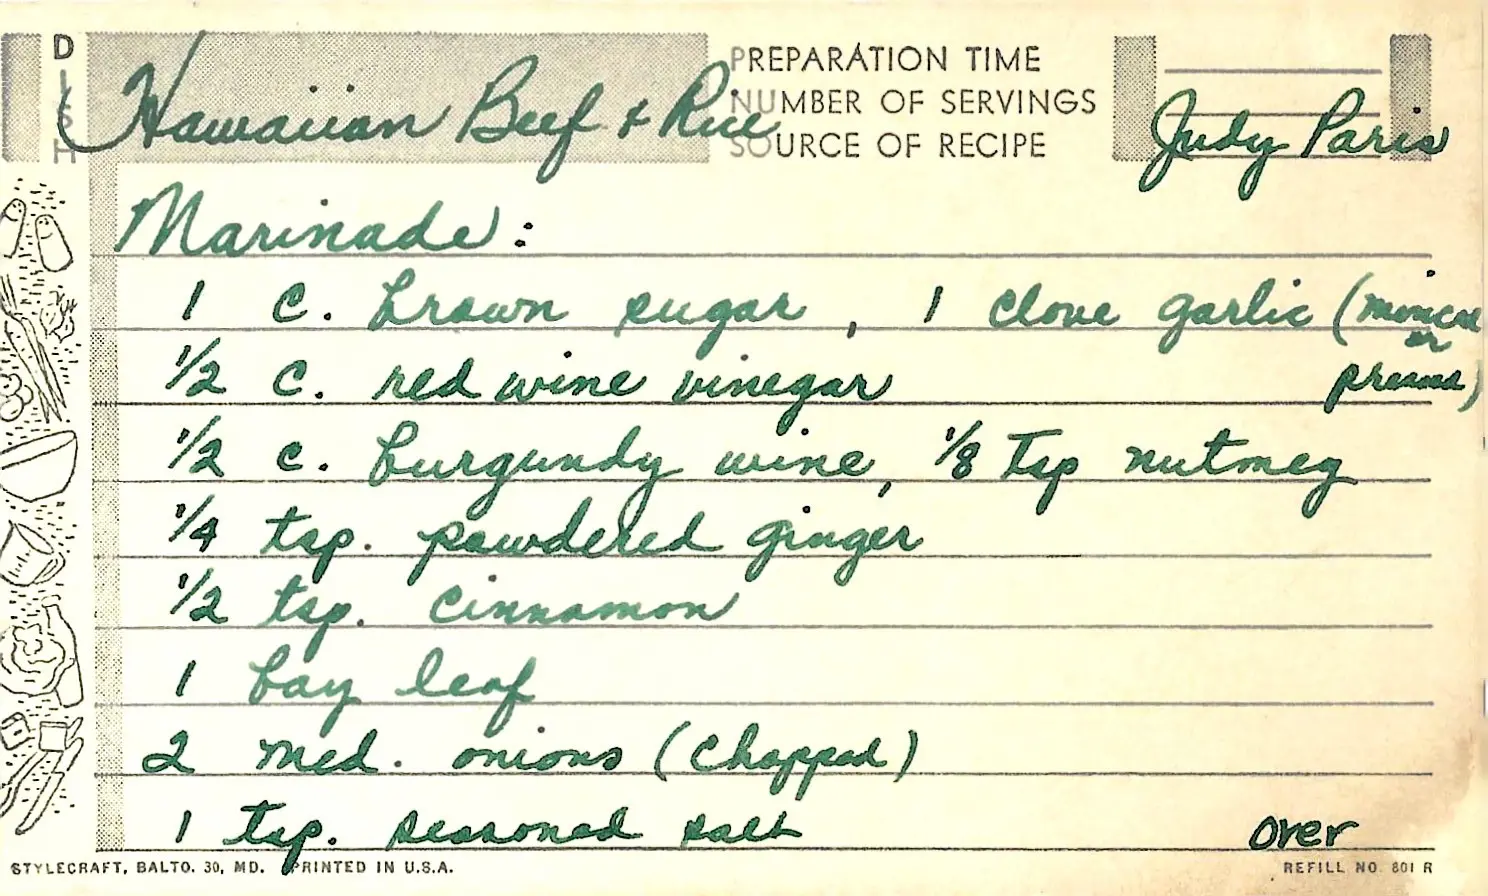 DISH
Hawaiian Beef + Rice
PREPARATION TIME
NUMBER OF SERVINGS
SOURCE OF RECIPE
Judy Paris
Marinade:
1 c. brown sugar, 1 clove garlic (minced or pressed)
1/2 c. red wine vinegar
1/2 c. burgundy wine, 1/8 tsp nutmeg
1/4 tsp. powdered ginger
1/2 tsp. cinnamon
1 bay leaf
2 med. onions (chopped)
1 tsp. seasoned salt
over
STYLECRAFT, BALTO. 30, MD. PRINTED IN U.S.A.
REFILL NO. 801 R